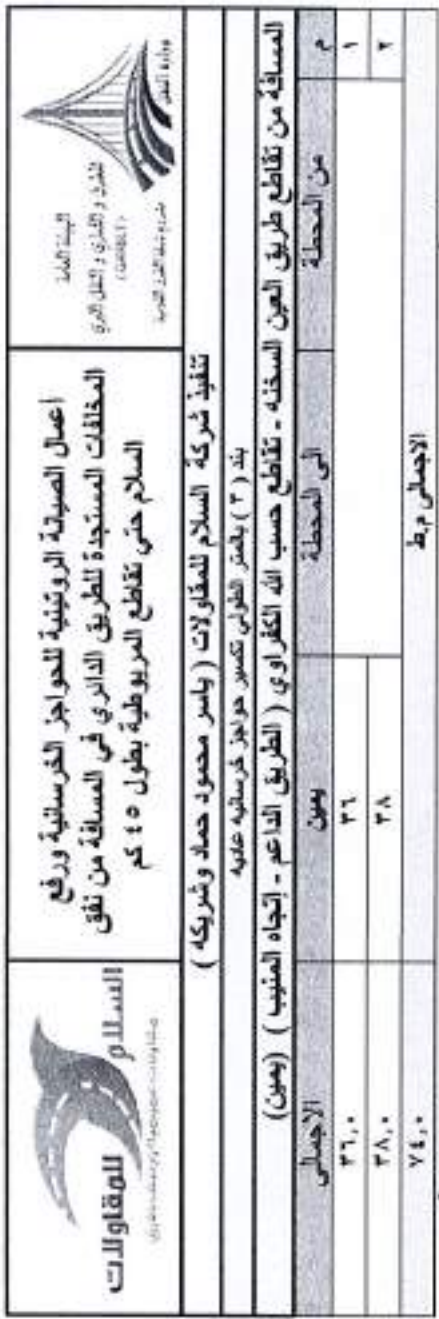 وزارة النقل
الهيئة العامة
للطرق و الكباري و النقل البري
أعمال الصيانة الروتينية للحواجز الخرسانية ورفع
المخلفات المستجدة للطريق الدائري في المسافة من نفق
السلام حتى تقاطع المريوطية بطول ٤٥ كم
السلام
للمقاولات
تنفيذ شركة السلام للمقاولات ( ياسر محمود حماد وشريكه )
بند ( ٣ ) بالمتر الطولي تكسير حواجز خرسانيه عاديه
المسافة من تقاطع طريق العين السخنه - تقاطع حسب الله الكفراوي ( الطريق الداعم - إتجاه المنيب ) (يمين)
م من المحطة الى المحطة يمين الاجمالى
١ ٣٦ ٣٦,٠
٢ ٣٨ ٣٨,٠
الاجمالى م.ط ٧٤,٠